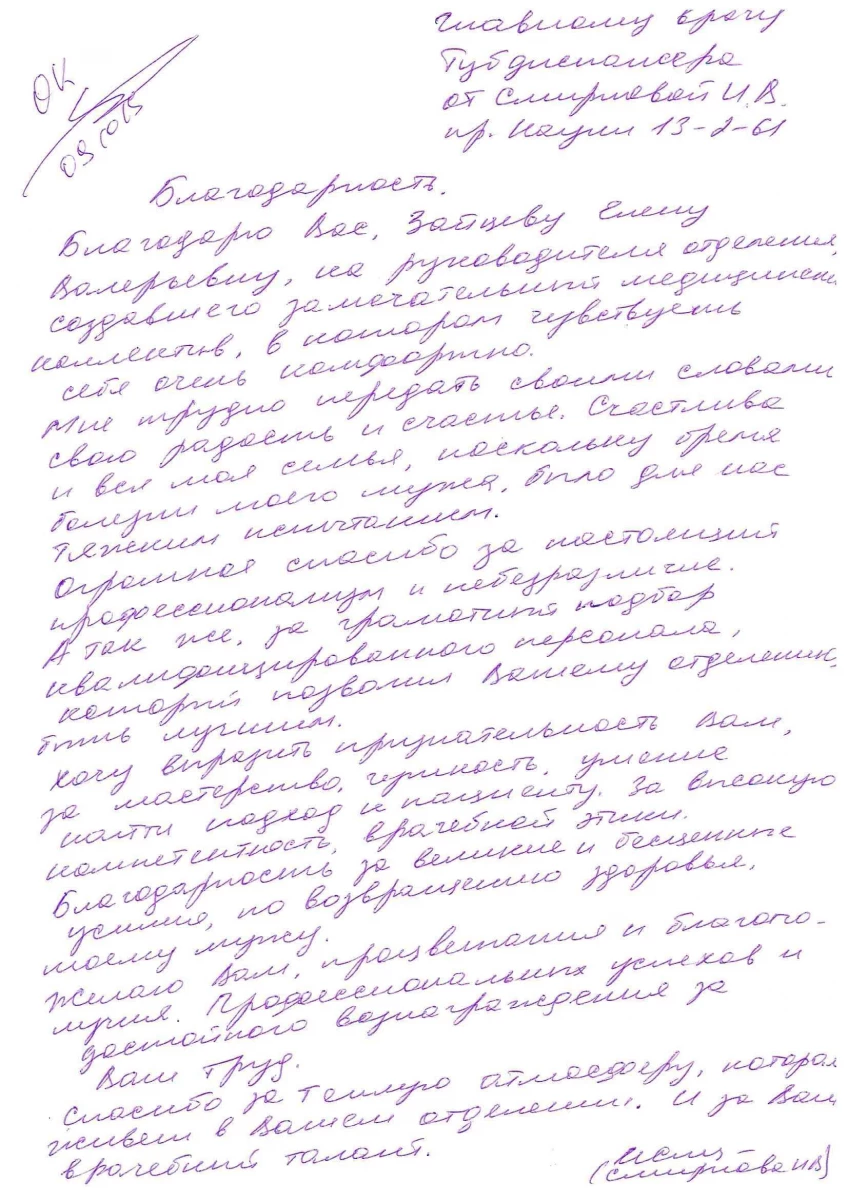 Главному врачу
Тубдиспансера
от Смирновой И.В.
пр. Науки 13-2-61
ОК
09.10.15
Благодарность.
Благодарю Вас, Зайцеву Елену
Валерьевну, на руководителя отделения,
создавшего замечательный медицински
коллектив, в котором чувствуешь
себя очень комфортно.
Мне трудно передать своими словами
свою радость и счастье. Счастлива
и вся моя семья, поскольку время
болезни моего мужа, было для нас
тяжким испытанием.
Огромное спасибо за настоящий
профессионализм и небезразличие.
А так же, за грамотный подбор
квалифицированного персонала,
который позволил Вашему отделению
быть лучшим.
Хочу выразить признательность Вам,
за мастерство, чуткость, умение
найти подход к пациенту. За высокую
компетентность, врачебной этики.
Благодарность за великие и бесценные
усилия, по возвращению здоровья,
моему мужу.
Желаю Вам, процветания и благопо-
лучия. Профессиональных успехов и
достойного вознаграждения за
Ваш труд.
Спасибо за теплую атмосферу, которая
живет в Вашем отделении. И за Ваш
врачебный талант.
(Смирнова ИВ)